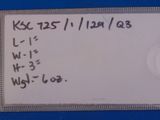 KSC 725/1/129/Q3
L-1"
W-1"
H-3"
Wgt.-6oz.